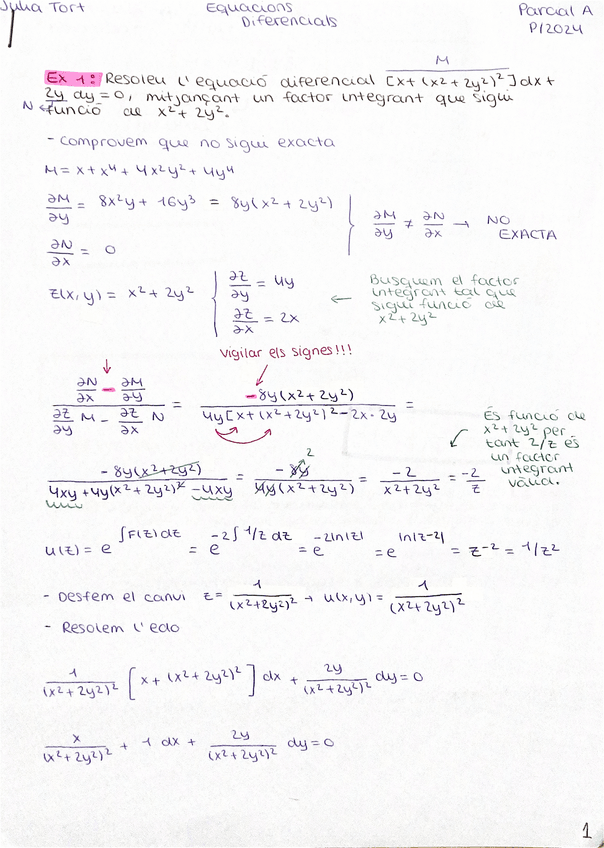 Julia Tort
Equacions
Diferencials
Parcial A
P/2024
M
Ex 1: Resoleu l'equació diferencial [x + (x² + 2y²)²] dx +
2y dy = 0, mitjançant un factor integrant que sigui
N ← funció de x² + 2y².
- Comprovem que no sigui exacta
M = x + x⁴ + 4x²y² + 4y⁴
∂M/∂y = 8x²y + 16y³ = 8y(x² + 2y²)
∂N/∂x = 0
∂M/∂y ≠ ∂N/∂x → NO
EXACTA
z(x,y) = x² + 2y²
∂z/∂y = 4y
∂z/∂x = 2x
← Busquem el factor
integrant tal que
sigui funció de
x² + 2y²
Vigilar els signes!!!
(∂N/∂x - ∂M/∂y)/(∂z/∂y M - ∂z/∂x N) = -8y(x² + 2y²)/(4y[x + (x² + 2y²)² - 2x · 2y) =
-8y(x² + 2y²)/(4xy + 4y(x² + 2y²)² - 4xy) = -8y/(4y(x² + 2y²)) 2 = -2/(x² + 2y²) = -2/z
És funció de
x² + 2y² per
tant 2/z és
un factor
integrant
vàlid.
u(z) = e^∫F(z)dz = e^-2∫1/z dz = e^-2ln|z| = e^ln|z-2| = z⁻² = 1/z²
- Desfem el canvi z = 1/(x²+2y²)² → u(x,y) = 1/(x²+2y²)²
- Resolem l'edo
1/(x²+2y²)² [x + (x² + 2y²)²] dx + 2y/(x²+2y²)² dy = 0
x/(x²+2y²)² + 1 dx + 2y/(x²+2y²)² dy = 0
1